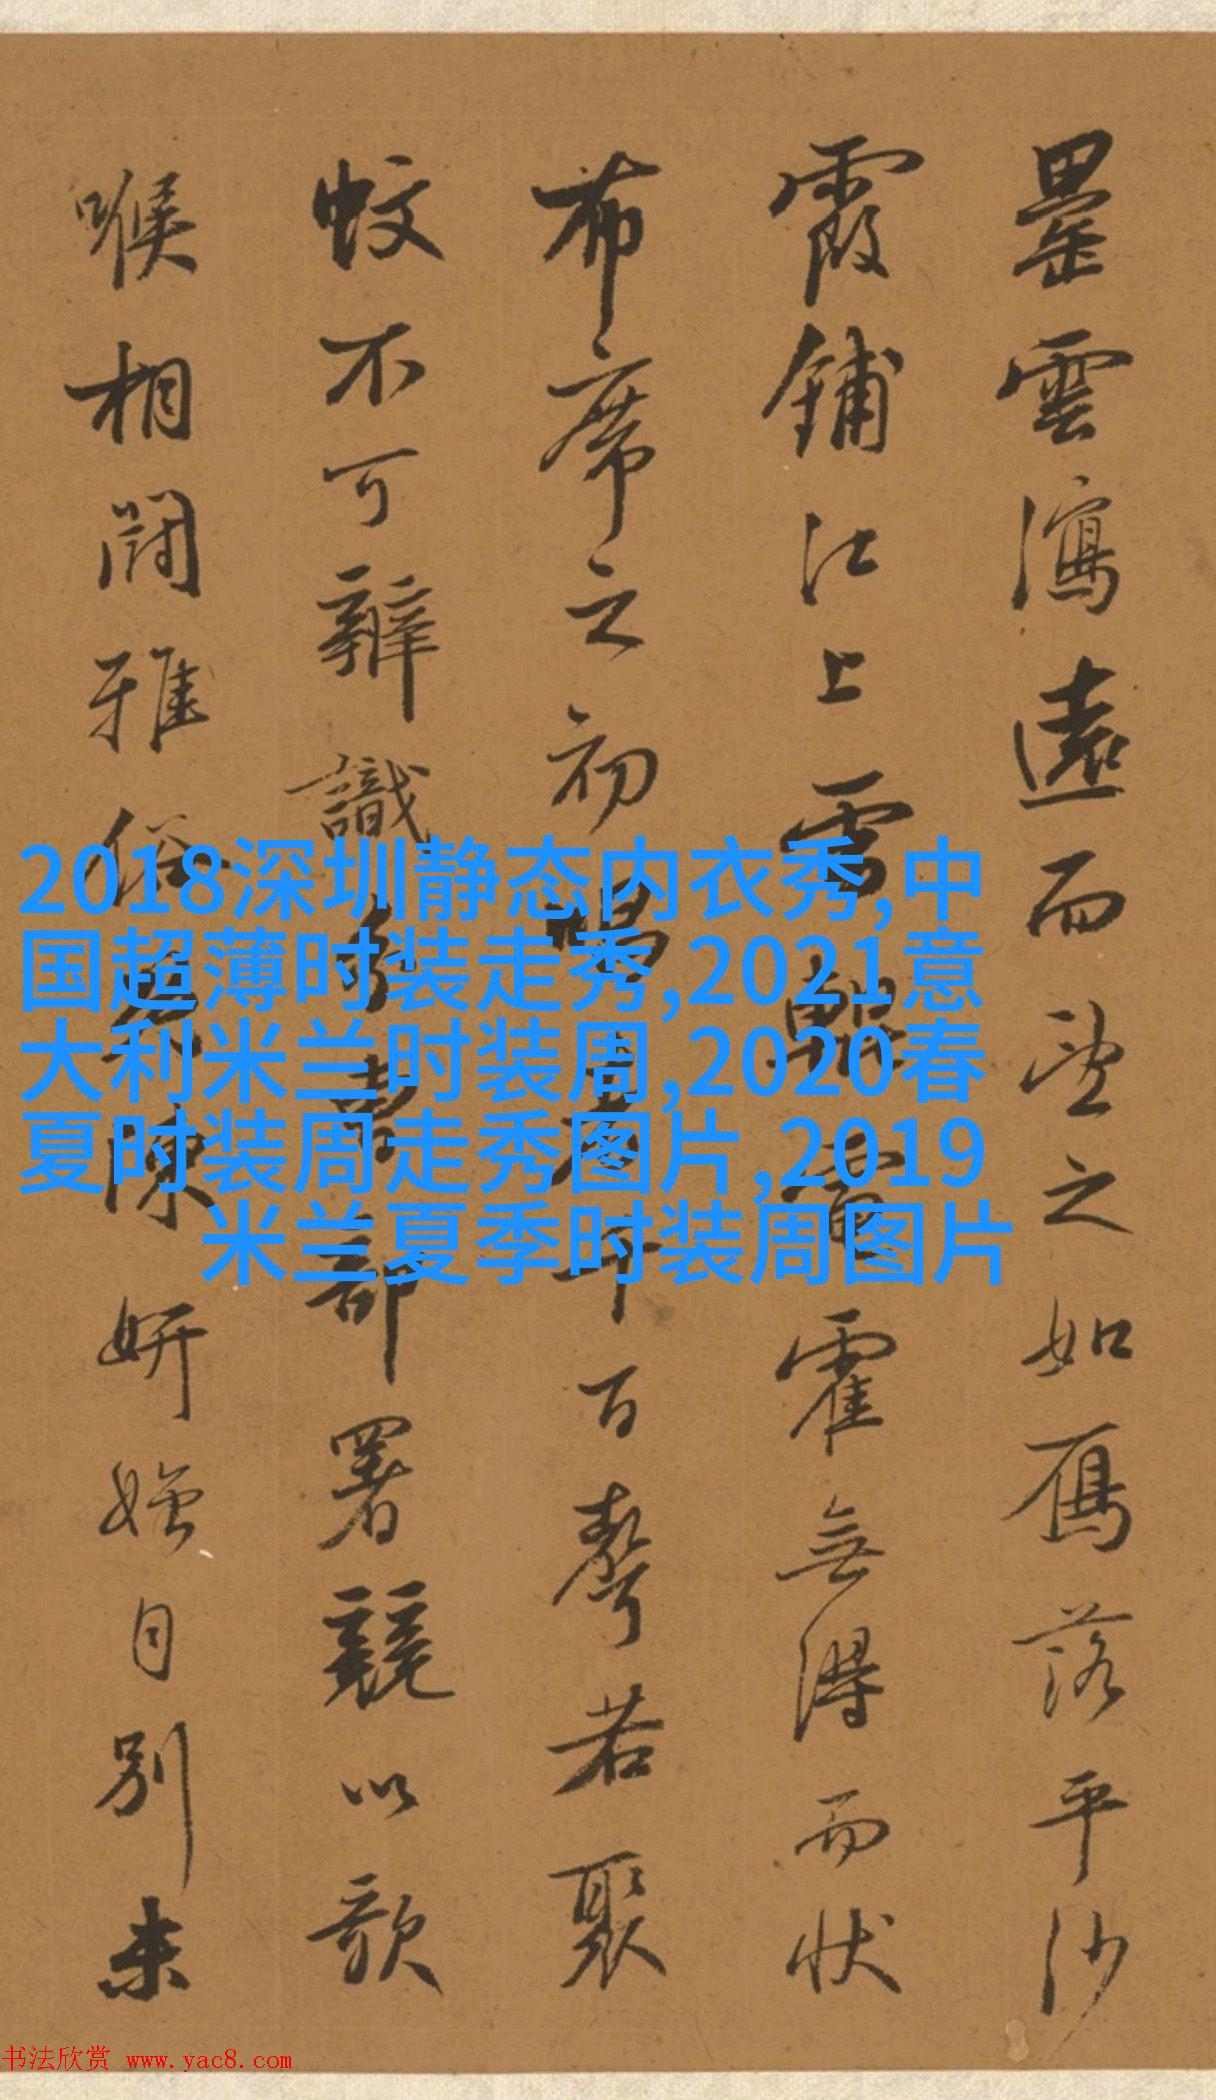 罍雲瀉遠而望之如雁落平沙
霞鋪江上雷輥電霍無得而状
布席之初唱者千百聲若聚
蚊不可辨識分曹部署競以歌
喉相鬪雅俗既陳妍媸自別未
2018深圳静态内衣秀,中
国超薄时装走秀,2021意
大利米兰时装周,2020春
夏时装周走秀图片,2019
米兰夏季时装周图片
书法欣赏 www.yac8.com